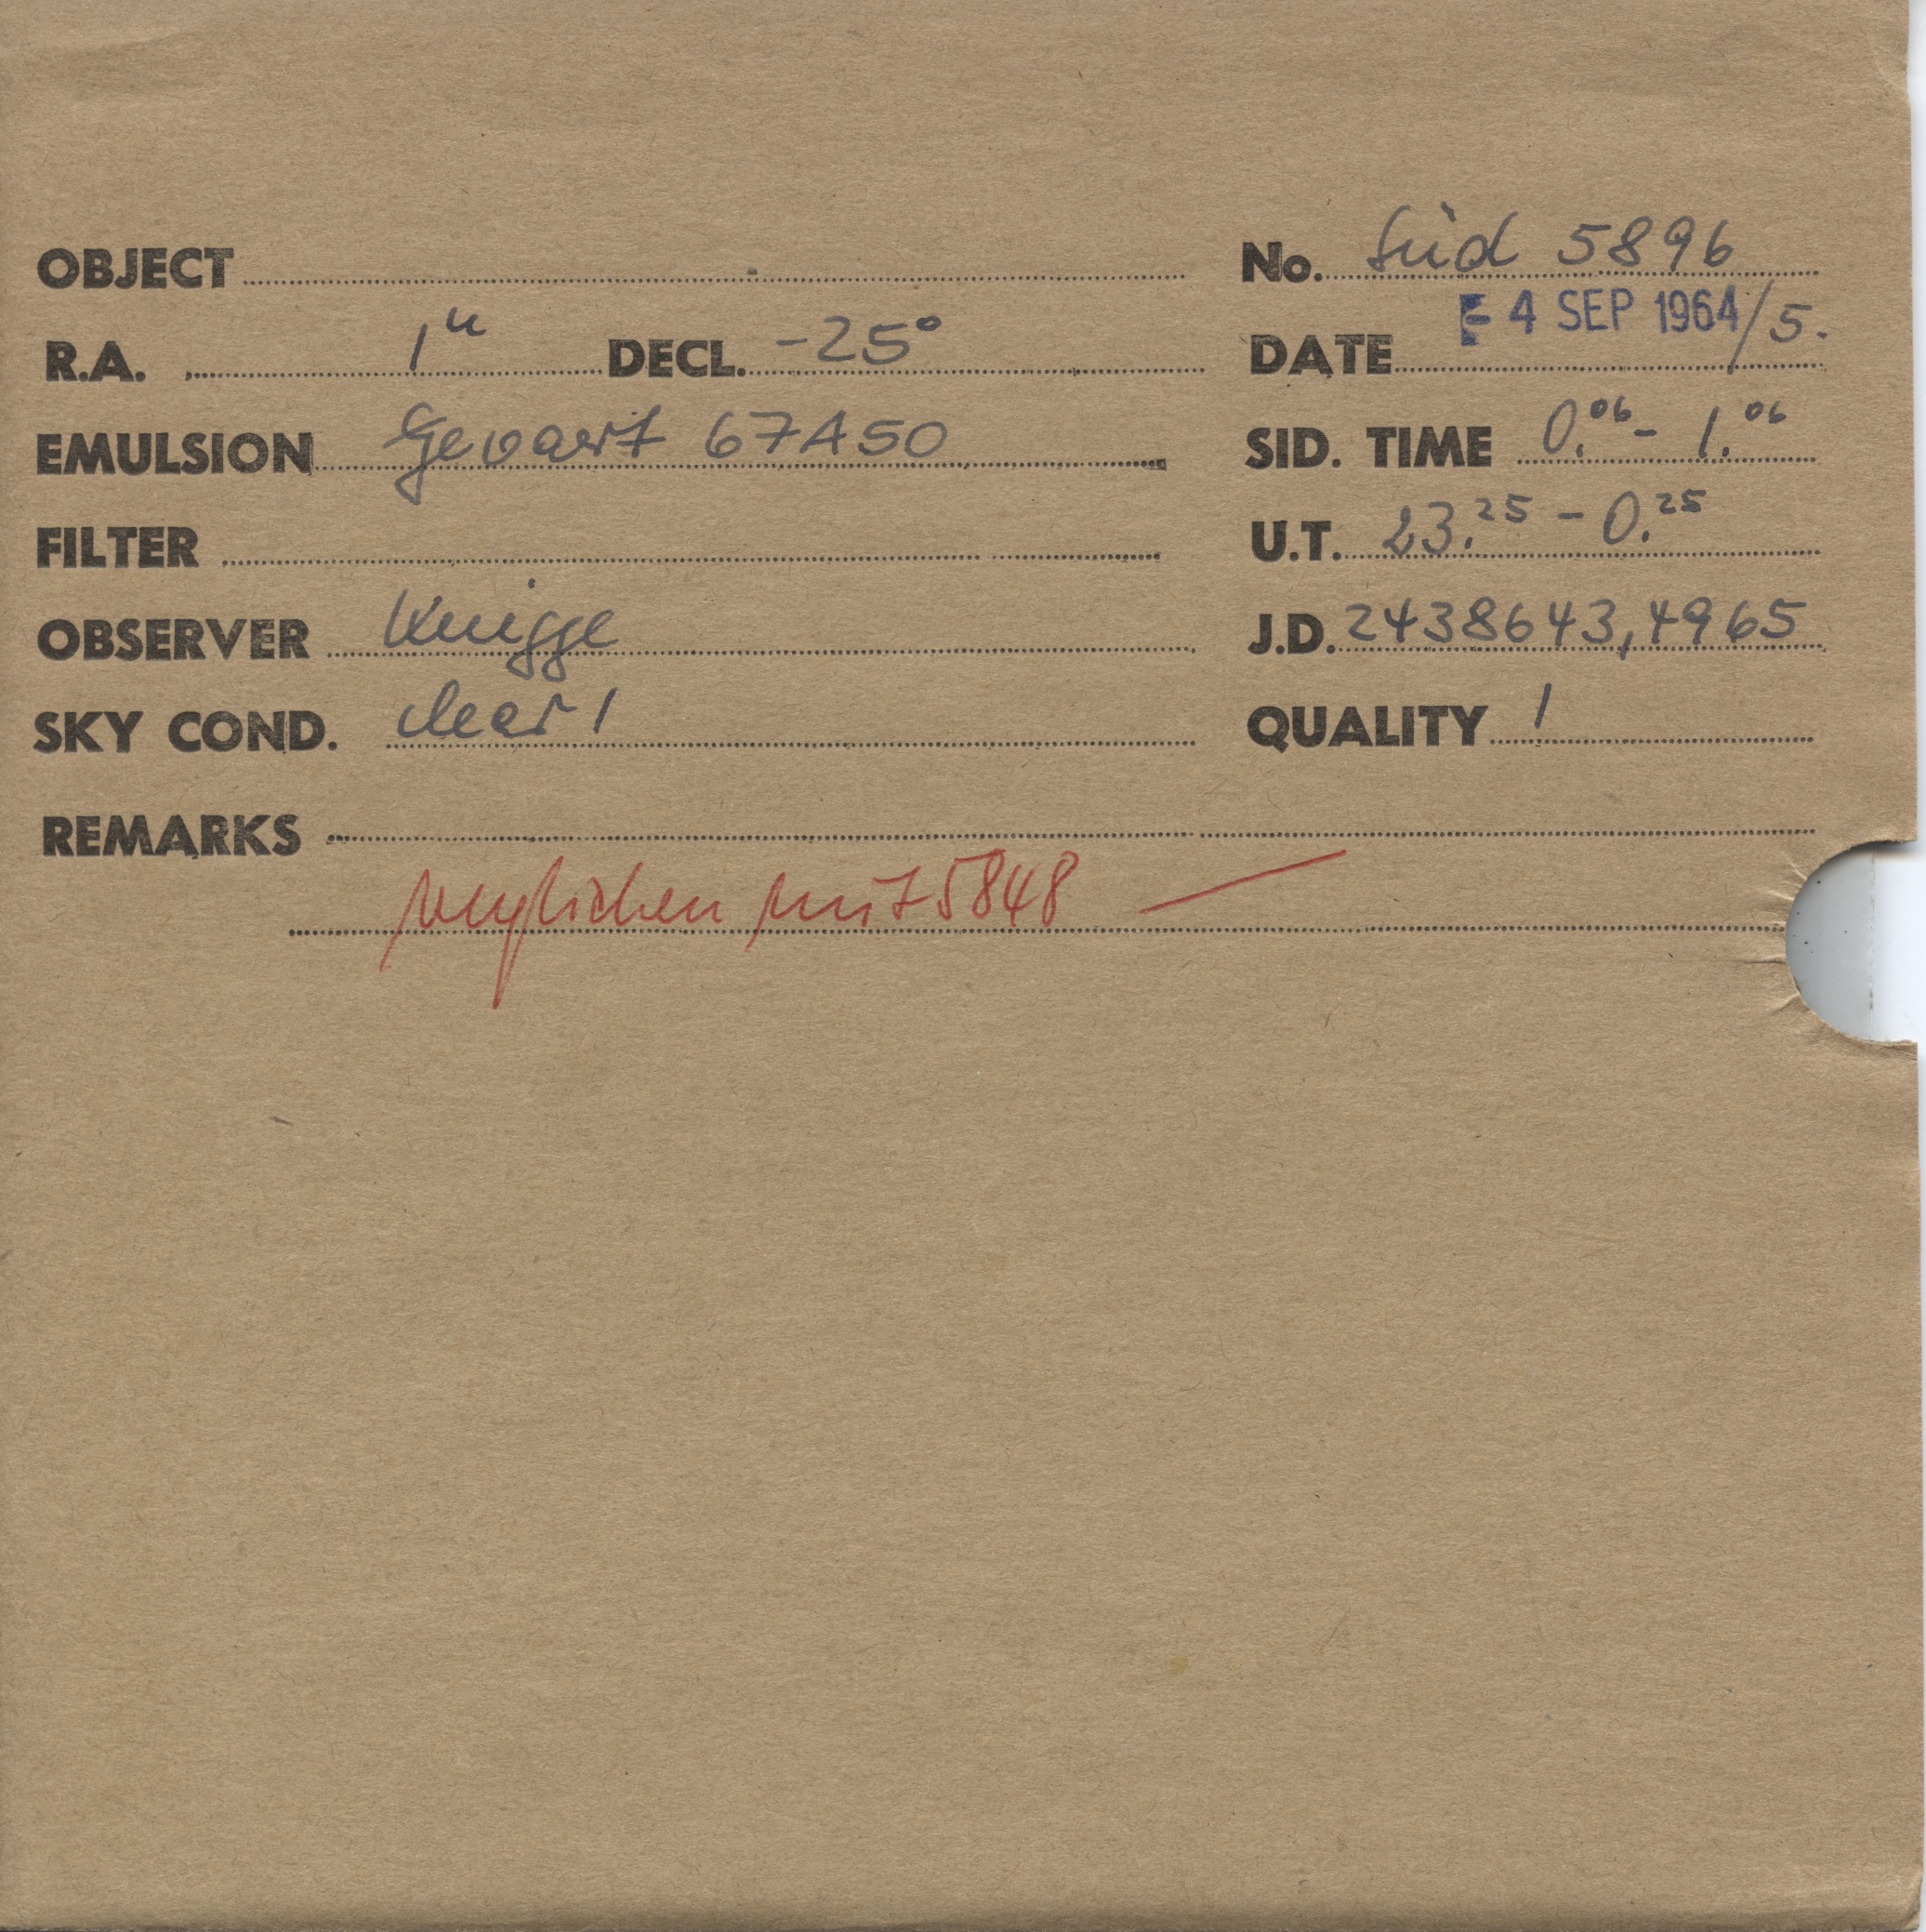 OBJECT No. Süd 5896
R.A. 1h DECL. -25° DATE - 4 SEP 1964/5.
EMULSION Gevaert 67A50 SID. TIME 0.06 - 1.06
FILTER U.T. 23.25 - 0.25
OBSERVER Knigge J.D. 2438643,4965
SKY COND. clear 1 QUALITY 1
REMARKS
verglichen mit 5848 —